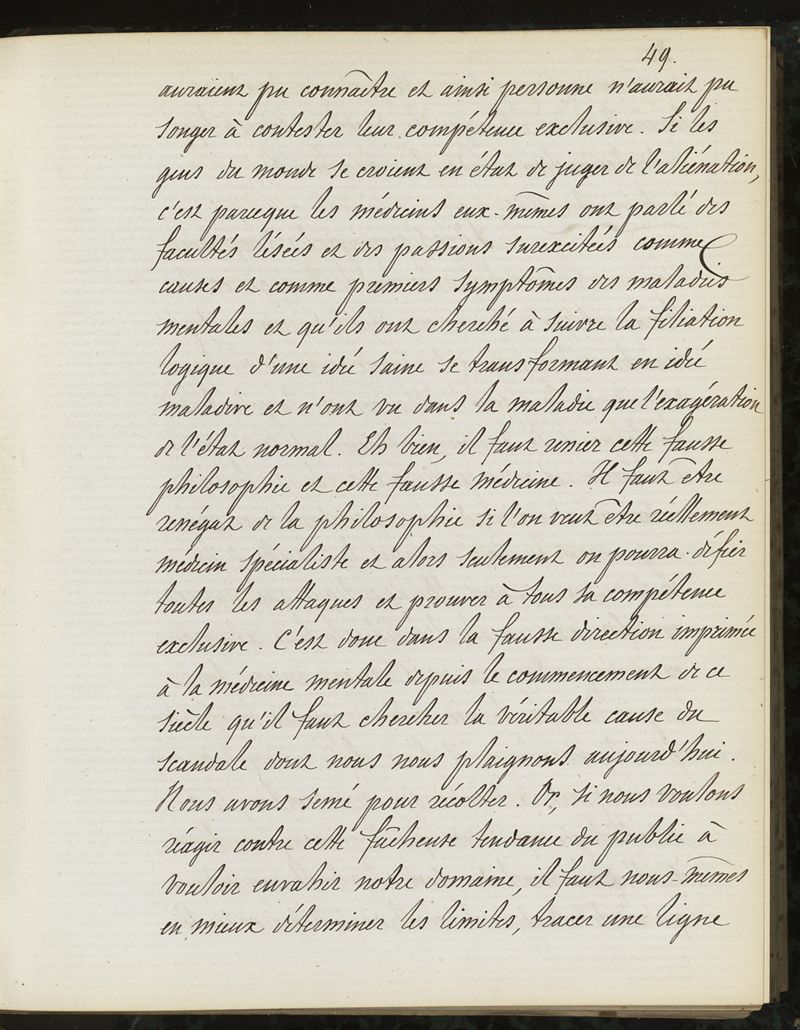 49.
auraient pu connaître et ainsi personne n'aurait pu
songer à contester leur compétence exclusive. Si les
gens du monde se croient en état de juger de l'aliénation,
c'est parceque les médecins eux-mêmes ont parlé des
facultés lésées et des passions surexcitées comme
causes et comme premiers symptômes des maladies
mentales et qu'ils ont cherché à suivre la filiation
logique d'une idée saine se transformant en idée
maladive et n'ont vu dans la maladie que l'exagération
de l'état normal. Eh bien, il faut renier cette fausse
philosophie et cette fausse médecine. Il faut être
renégat de la philosophie si l'on veut être réellement
médecin spécialiste et alors seulement on pourra défier
toutes les attaques et prouver à tous sa compétence
exclusive. C'est donc dans la fausse direction imprimée
à la médecine mentale depuis le commencement de ce
siècle qu'il faut chercher la véritable cause du
scandale dont nous nous plaignons aujourd'hui.
Nous avons semé pour récolter. Or, si nous voulons
réagir contre cette fâcheuse tendance du public à
vouloir envahir notre domaine, il faut nous-mêmes
en mieux déterminer les limites, tracer une ligne